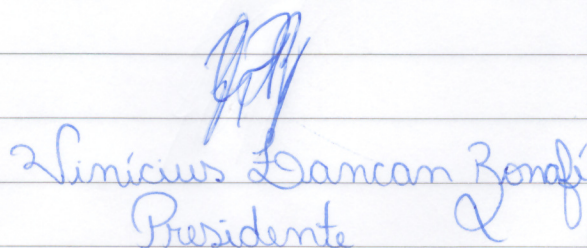 Vinícius Zancan Bonafi
Presidente